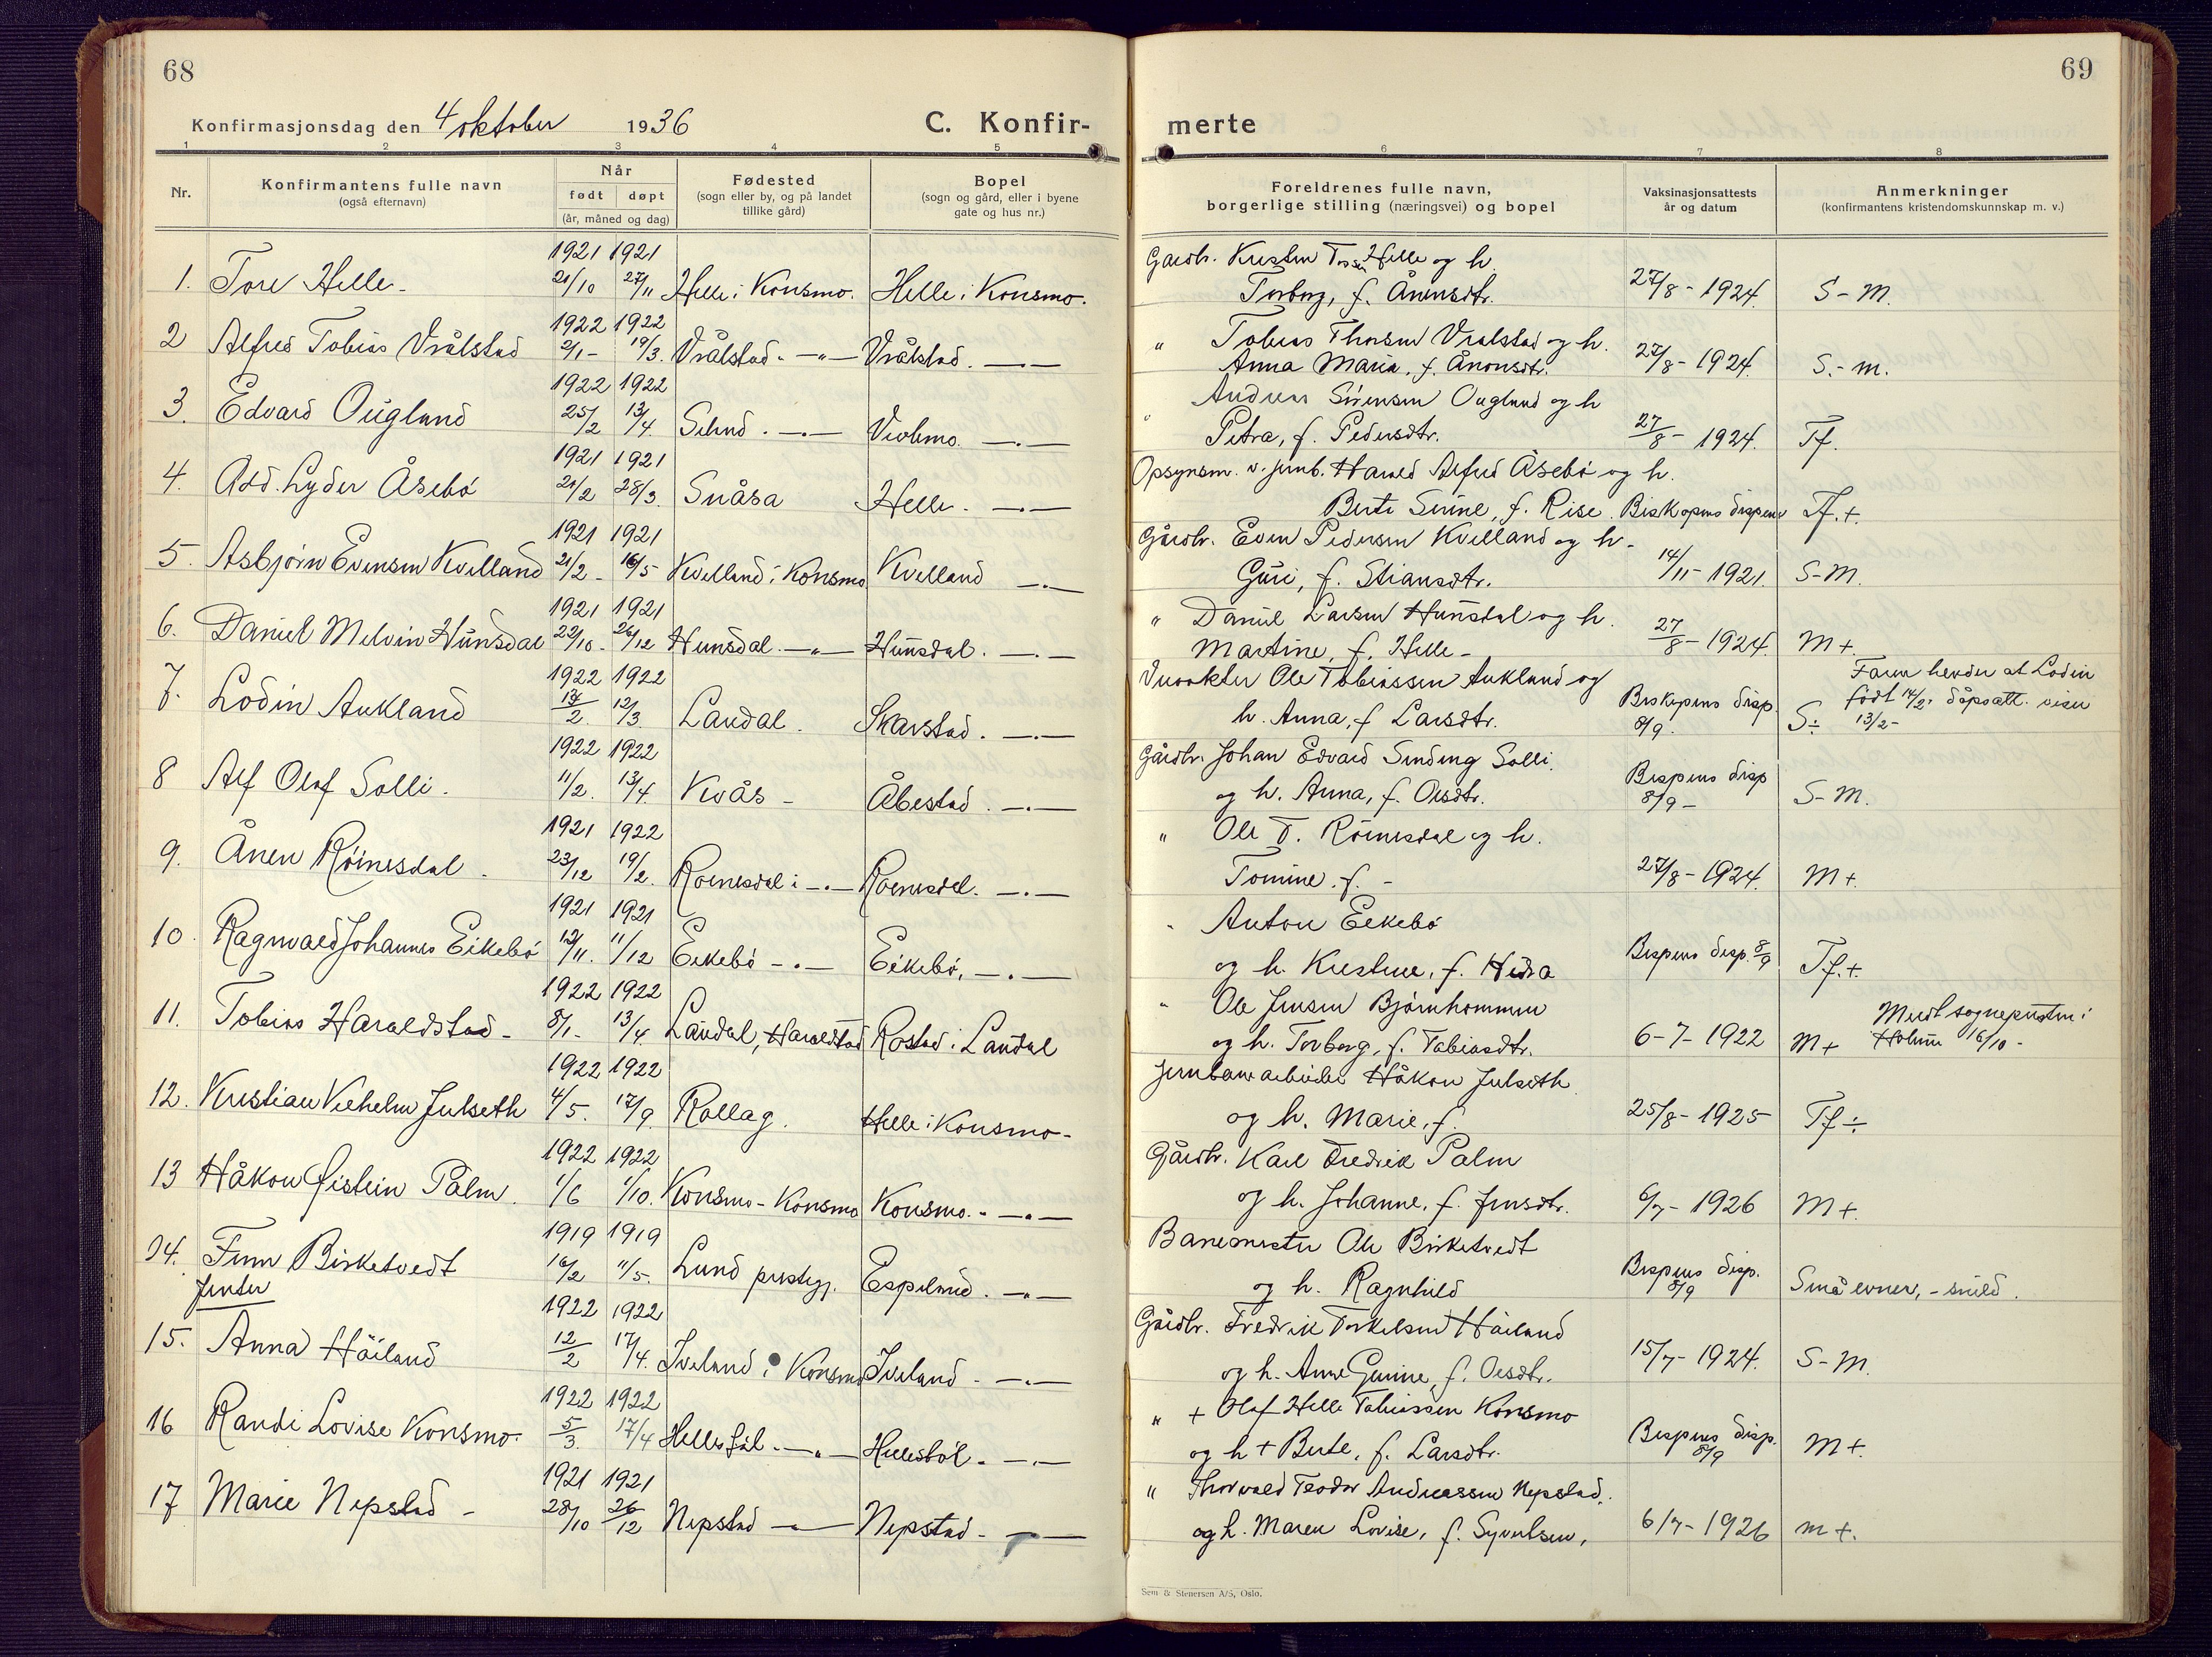 68
Konfirmasjonsdag den 4 oktober 1936
C. Konfir-
1 2 3 4 5
Nr.
Konfirmantens fulle navn
(også efternavn)
Når
født døpt
(år, måned og dag)
Fødested
(sogn eller by, og på landet
tillike gård)
Bopel
(sogn og gård, eller i byene
gate og hus nr.)
1921 1921
1. Tore Helle. 21/10 27/11 Helle i Konsmo. Helle i Konsmo.
1922 1922
2 Alfred Tobias Vrålstad 2/1- 19/3. Vrålstad. -"- Vrålstad. -.-
1922 1922
3. Edvard Ougland 25/2 13/4. Selund. -.- Viblemo. -.-
1921 1921
4. Odd. Lyder Åsebö 21/2 28/3. Snåsa Helle. -.-
1921 1921
5. Asbjörn Evensen Kvelland 21/2- 16/5 Kvelland i Konsmo Kvelland -.-
1921 1921
6. Daniel Melvin Hunsdal 22/10- 26/12 Hunsdal. -"- Hunsdal. -.-
1922 1922
7. Lodin Aukland 13/2. 12/3. Laudal. Skarstad. -.-
1922 1922
8 Alf Olaf Solli. 11/2. 13/4. Kvås - Åbestad. -.-
1921 1922
9. Ånen Röinesdal. 23/12 19/2. Roenesdal i -.- Roenesdal. -.-
1921 1921
10. Ragnvald Johannes Eikebö 12/11. 11/12 Eikebö -.- Eikebö, -.-
1922 1922
11. Tobias Haraldstad - 8/1- 13/4 Laudal, Haraldstad Rostad i Laudal
1922 1922
12. Kristian Vilhelm Julseth 4/5. 17/9. Rollag. Helle i Konsmo-
1922 1922
13 Håkon Øistein Palm. 1/6 1/10. Konsmo-Konsmo Konsmo. -.-
1919 1919
14. Finn Birketvedt 16/2 11/5. Lund prestegj. Espelund. -.-
Jenter
1922 1922
15. Anna Höiland 12/2 17/4. Iveland i Konsmo Iveland. -.-
1922 1922
16 Randi Lovise Konsmo. 5/3. 17/4 -"- Hellesböl. -.-
1921 1921
17 Marie Nepstad - 28/10 26/12 Nepstad -"- Nepstad. -
69
merte
6 7 8
Foreldrenes fulle navn,
borgerlige stilling (næringsvei) og bopel
Vaksinasjonsattests
år og datum
Anmerkninger
(konfirmantens kristendomskunnskap m. v.)
Gårdbr. Kristen Helle og h.
Torborg, f. Ånensdtr. 27/8-1924. S-M.
" Tobias Thorsen Vralstad og h.
Anna Maria, f. Ånonsdtr. 27/8-1924. S.-m.
Andreas Sörensen Ougland og h
Petra, f. Pedersdtr. 27/8-1924. Tf.
Opsynsm. v. jernb. Harald Alfred Åsebö og h.
Berte Serine, f. Rise. Biskopens dispens Tf.+.
Gårdbr. Even Pedersen Kvelland og h.
Guri, f. Stiansdtr. 14/11-1921. S-M.
" Daniel Larsen Hunsdal og h.
Martine, f. Helle- 27/8-1924. M+.
Ole Tobiassen Aukland og
h. Anna, f Larsdtr. Biskopens disp. 8/9. S÷
Faren hevder at Lodin
født 14/2. dåpsatt. viser
13/2-
Gårdbr. Johan Edvard Sinding Solli.
og h. Anna, f. Olsdtr. Bispens disp 8/9- S-M.
" Ole T. Röinesdal og h.
Tomine. f. - 27/8-1924. M+.
" Anton Eikebö
og h. Kristine, f. Hidra Bispens disp. 8/9 Tf.+.
" Ole Jensen Björnhommen
og h. Torborg, f. Tobiasdtr. 6-7-1922 M+
Meldt sognepresten i
Holum 16/10-
Jernbanearbeider Håkon Julseth
og h. Marie, f. 25/8-1925 Tf÷
Gårdbr. Karl Fredrik Palm
og h. Johanne, f. Jensdtr. 6/7-1926 M+.
Banemester Ole Birketvedt
og h. Ragnhild Bispens disp. 8/9 Små evner, - snild.
Gårdbr. Fredrik Torkelsen Höiland
og h. Anne Gurine, f. Olsdtr. 15/7-1924. S-M.
" + Olaf Helle Tobiassen Konsmo
og h + Berte, f. Larsdtr. Bispens disp. 8/9 M+.
" Thorvald Teodor Andreassen Nepstad.
og h. Maren Lovise, f. Syvertsen, 6/7-1926 m+.
Sem & Stenersen A/S, Oslo.